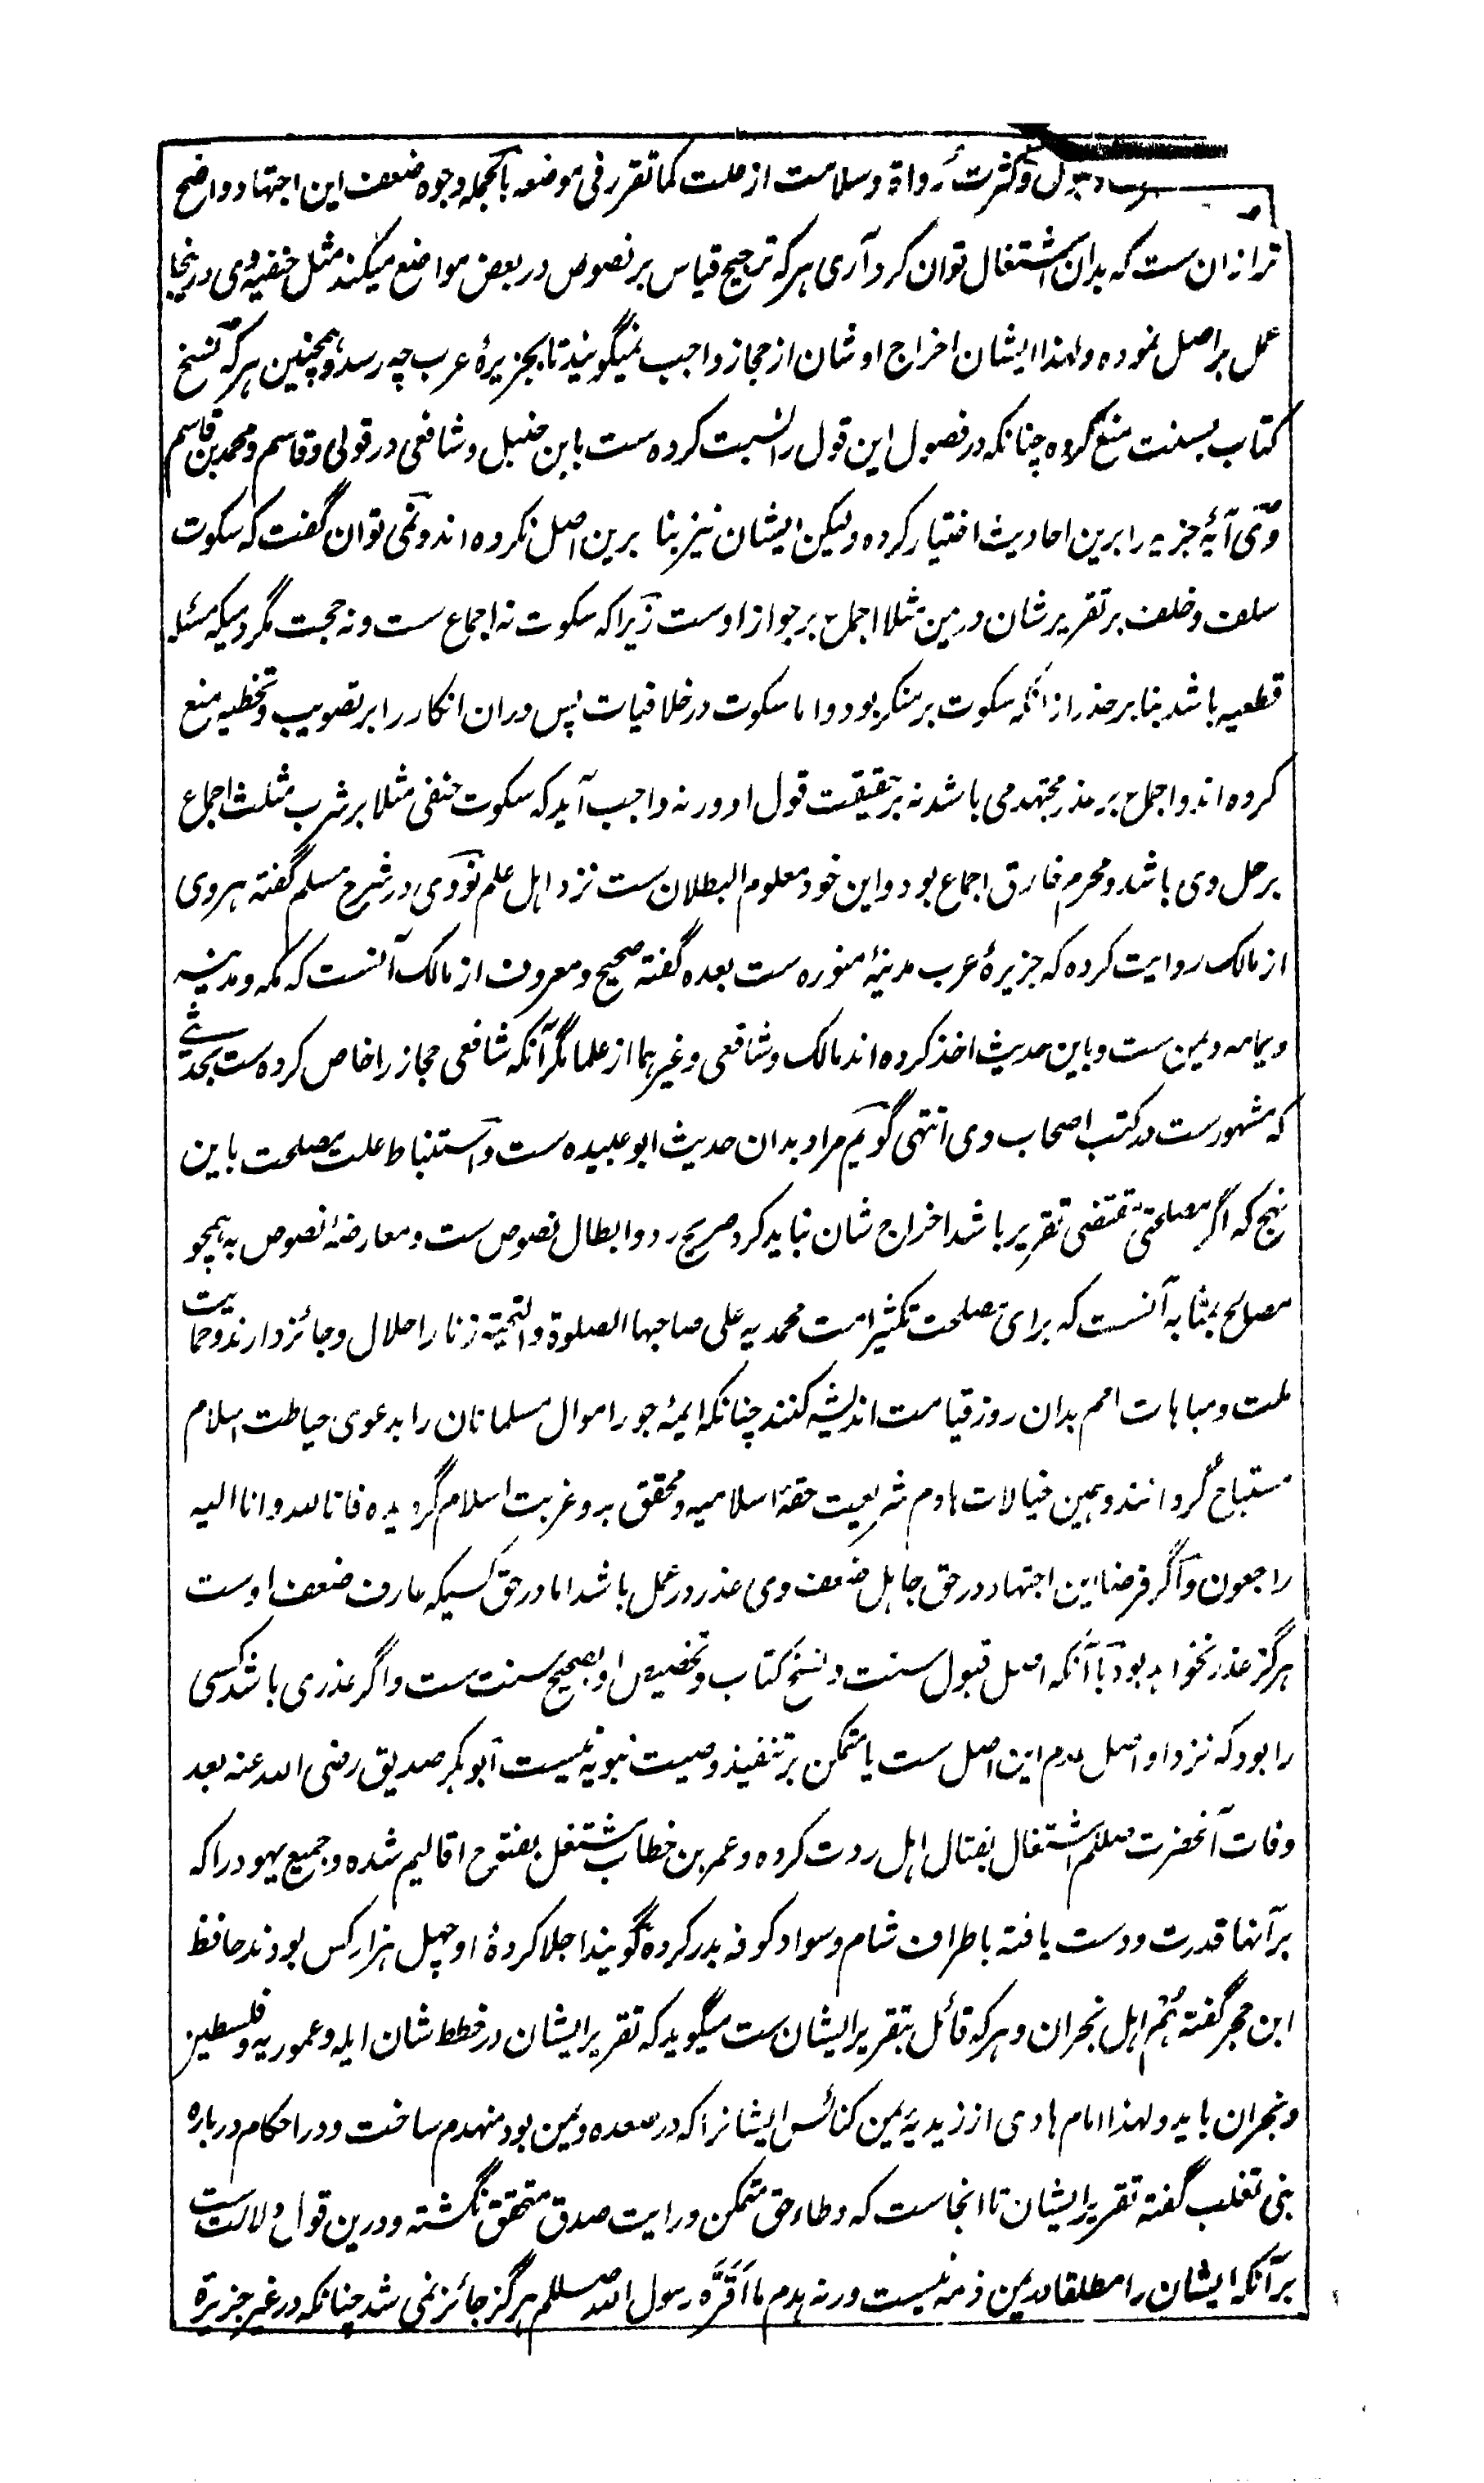 و کثرت رواة و سلامت از علت کما تقرر فی موضعه بالجمله وجوه ضعف این اجتهاد واضح
تر ازان ست که بدان اشتغال توان کرد آری هر که ترجیح قیاس بر نصوص در بعض مواضع میکند مثل حنفیه وی درینجا
عمل بر اصل نموده و لهذا ایشان اخراج اوشان از حجاز واجب نمیگویند تا بجزیرهٔ عرب چه رسد و همچنین هر که نسخ
کتاب بسنت منع کرده چنانکه در فصول این قول را نسبت کرده ست بابن حنبل و شافعی در قولی و قاسم و محمد بن قاسم
وی آیهٔ جزیه را برین احادیث اختیار کرده ولیکن ایشان نیز بنا برین اصل نکرده اند و نمی توان گفت که سکوت
سلف و خلف بر تقریر شان در یمن مثلا اجماع بر جواز اوست زیرا که سکوت نه اجماع ست و نه حجت مگر دمیکه مسئله
قطعیه باشد بنا بر حذر از آنکه سکوت بر منکر بود و اما سکوت در خلافیات پس دران انکار را بر تصویب و تخطیه منع
کرده اند و اجماع بر عذر مجتهد می باشد نه بر حقیقت قول او ورنه واجب آید که سکوت حنفی مثلا بر شرب مثلث اجماع
بر حل وی باشد و محرم خارق اجماع بود و این خود معلوم البطلان ست نزد اهل علم نووی در شرح مسلم گفته هروی
از مالک روایت کرده که جزیرهٔ عرب مدینهٔ منوره ست بعده گفته صحیح و معروف از مالک آنست که مکه و مدینه
و یمامه و یمن ست و باین حدیث اخذ کرده اند مالک و شافعی و غیرهما از علما مگر آنکه شافعی حجاز را خاص کرده ست بحدیثی
که مشهورست در کتب اصحاب وی انتهی گویم مراد بدان حدیث ابو عبیده ست و استنباط علت مصلحت باین
نهج که اگر مصلحتی مقتضی تقریر باشد اخراج شان نباید کرد صریح رد و ابطال نصوص ست و معارضهٔ نصوص به همچو
مصالح بمثابه آنست که برای مصلحت تکثیر امت محمدیه علی صاحبها الصلوة والتحیة زنا را حلال و جائز دارند و حمایت
ملت و مباهات امم بدان روز قیامت اندیشه کنند چنانکه ایمهٔ جور اموال مسلمانان را بدعوی حیاطت اسلام
مستباح گردانند و همین خیالات هادم شریعت حقهٔ اسلامیه و محقق بدو غربت اسلام گردیده فانا لله وانا الیه
راجعون و اگر فرضا این اجتهاد در حق جاهل ضعف وی عذر در عمل باشد اما در حق کسیکه عارف ضعف اوست
هرگز عذر نخواهد بود با آنکه اصل قبول سنت و نسخ کتاب و تخصیص او بصحیح سنت ست و اگر عذری باشد کسی
را بود که نزد او اصل عدم این اصل ست یا متمکن بر تنفیذ وصیت نبویه نیست ابوبکر صدیق رضی الله عنه بعد
وفات آنحضرت صلعم اشتغال بقتال اهل ردت کرده و عمر بن خطاب مشتغل بفتوح اقالیم شده و جمیع یهود را که
بر آنها قدرت و دست یافته باطراف شام و سواد کوفه بدر کرده گویند اجلا کردهٔ او چهل هزار کس بودند حافظ
ابن حجر گفته هُم اهل نجران و هر که قائل بتقریر ایشان ست میگوید که تقریر ایشان در خطط شان ایله و عموریه و فلسطین
و نجران باید و لهذا امام هادی از زیدیهٔ یمن کنائس ایشانرا که در صعده و یمن بود منهدم ساخت و در احکام درباره
بنی تغلب گفته تقریر ایشان تا انجاست که وطاء حق متمکن و رایت صدق متحقق نگشته و درین قول دلالت ست
بر آنکه ایشان را مطلقا در یمن ذمه نیست ورنه هدم ما اَقَرَّه رسول الله صلعم هرگز جائز نمی شد چنانکه در غیر جزیرة